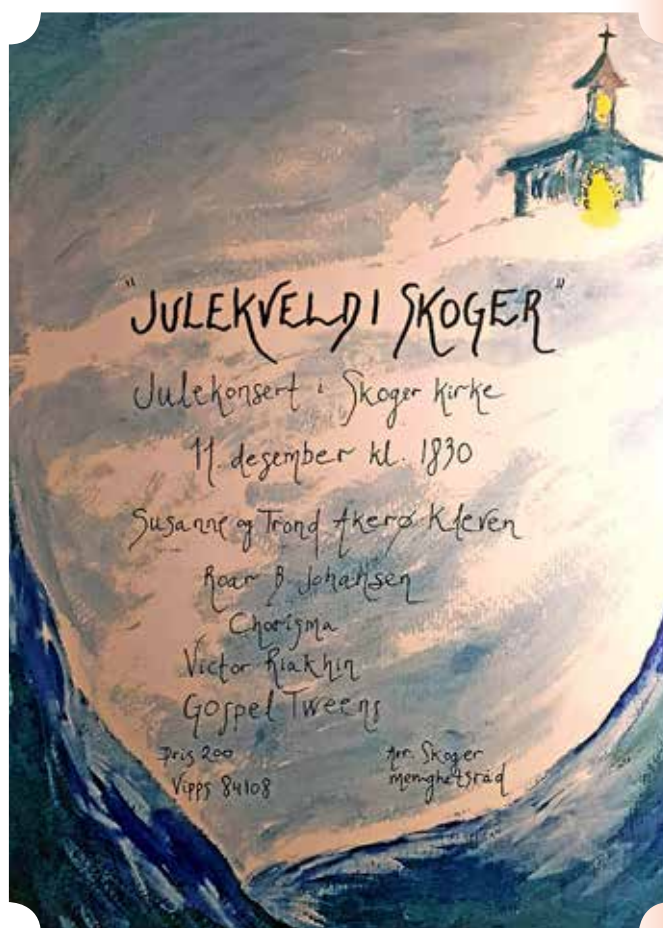 "JULEKVELD I SKOGER"
Julekonsert i Skoger kirke
11. desember kl. 1830
Susanne og Trond Akerø Kleven
Roar B Johansen
Chorisma
Victor Riakhin
Gospel Tweens
Pris 200
Vipps 84108
Arr. Skoger
menighetsråd